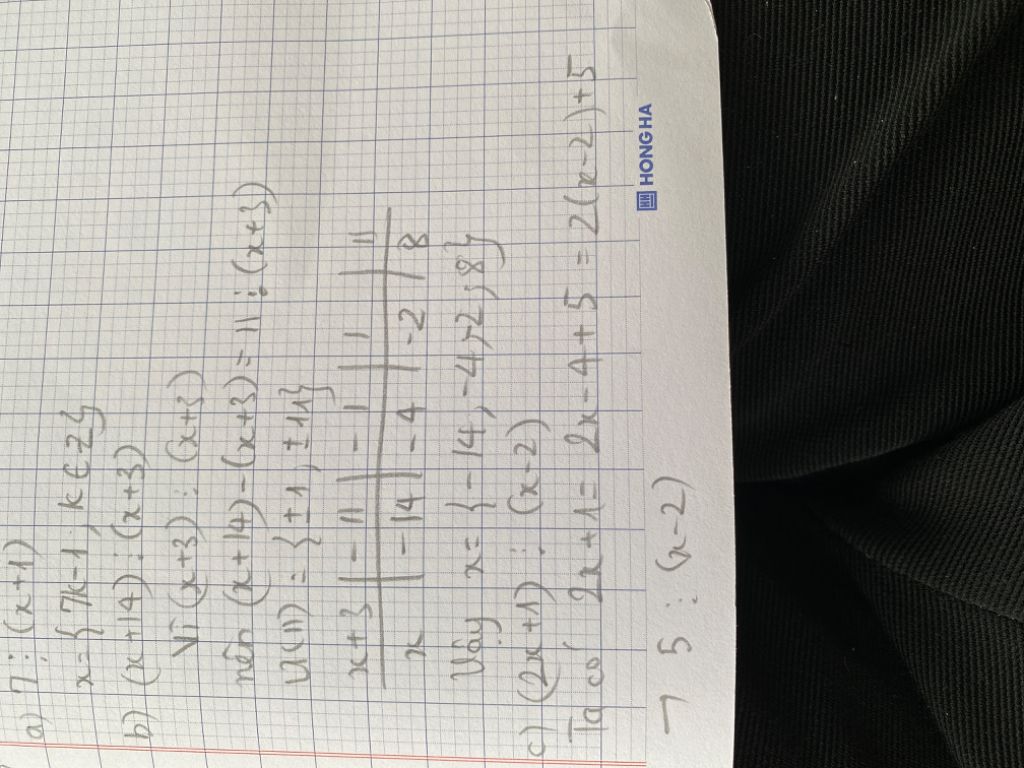 a) 7 ⋮ (x+1)
x={7k-1, k∈Z}
b) (x+14) ⋮ (x+3)
Vì (x+3) ⋮ (x+3)
nên (x+14)-(x+3)= 11 ⋮ (x+3)
Ư(11)= {±1, ±11}
x+3 | -11 | -1 | 1 | 11
x | -14 | -4 | -2 | 8
Vậy x={-14, -4, -2, 8}
c) (2x+1) ⋮ (x-2)
Ta có 2x+1= 2x-4+5 = 2(x-2)+5
→ 5 ⋮ (x-2)
HONG HA